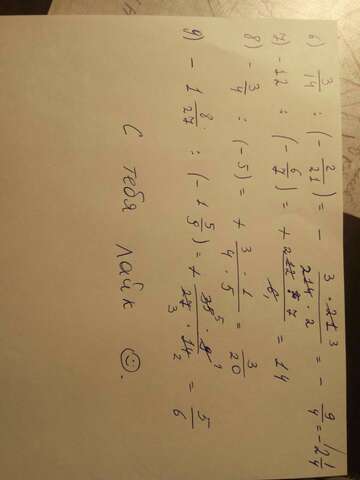 6) 3/14 : (- 2/21) = - 3 · 21 3 / 2 14 · 2 = - 9/4 = -2 1/4
7) - 12 : (- 6/7) = + 2 12 · 7 / 6 1 = 14
8) - 3/4 : (-5) = + 3 · 1 / 4 · 5 = 3/20
9) - 1 8/27 : (- 1 5/9) = + 35 5 · 9 1 / 3 27 · 14 2 = 5/6
С тебя лайк ☺.